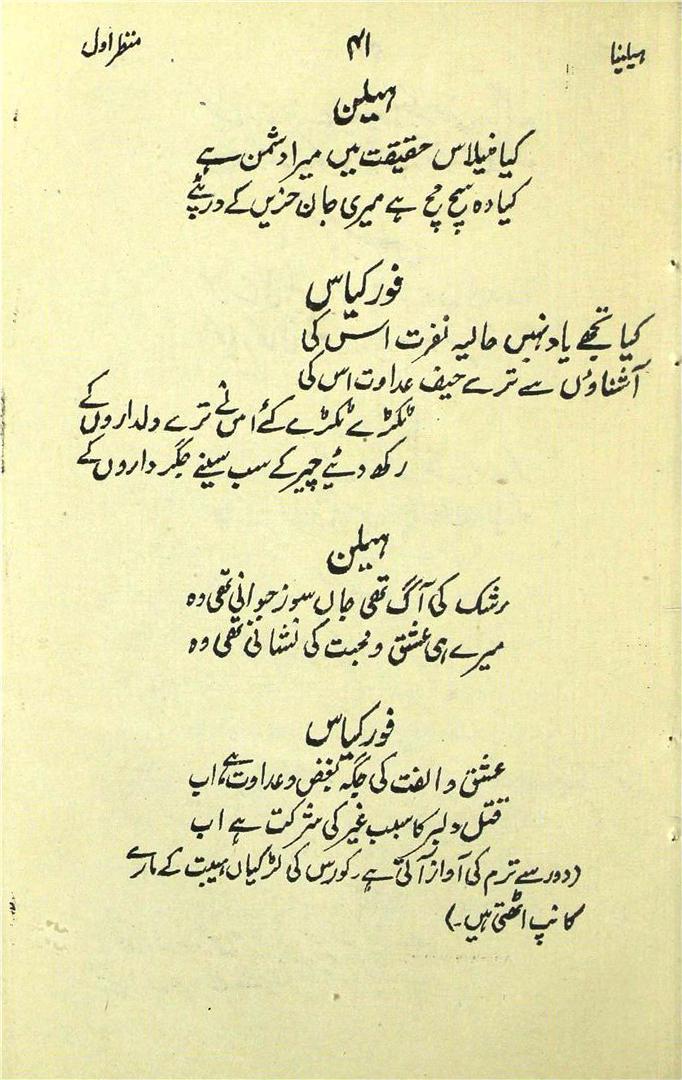 ہیلینا ۴۱ منظر اول
ہیلن
کیا فیلاس حقیقت میں میرا دشمن ہے
کیا وہ سچ مچ ہے میری جان حزیں کے درپئے
فورکیاس
کیا تجھے یاد نہیں حالیہ نفرت اس کی
آشناؤں سے ترے حیف عداوت اس کی
ٹکڑے ٹکڑے کئے اس نے ترے دلداروں کے
رکھ دئیے چیر کے سب سینے جگر داروں کے
ہیلن
رشک کی آگ تھی جاں سوز جوانی تھی وہ
میرے ہی عشق و محبت کی نشانی تھی وہ
فورکیاس
عشق و الفت کی جگہ بغض و عداوت ہے اب
قتل دلبر کا سبب غیر کی شرکت ہے اب
(دور سے ترم کی آواز آتی ہے۔ کورس کی لڑکیاں ہیبت کے مارے
کانپ اٹھتی ہیں۔)